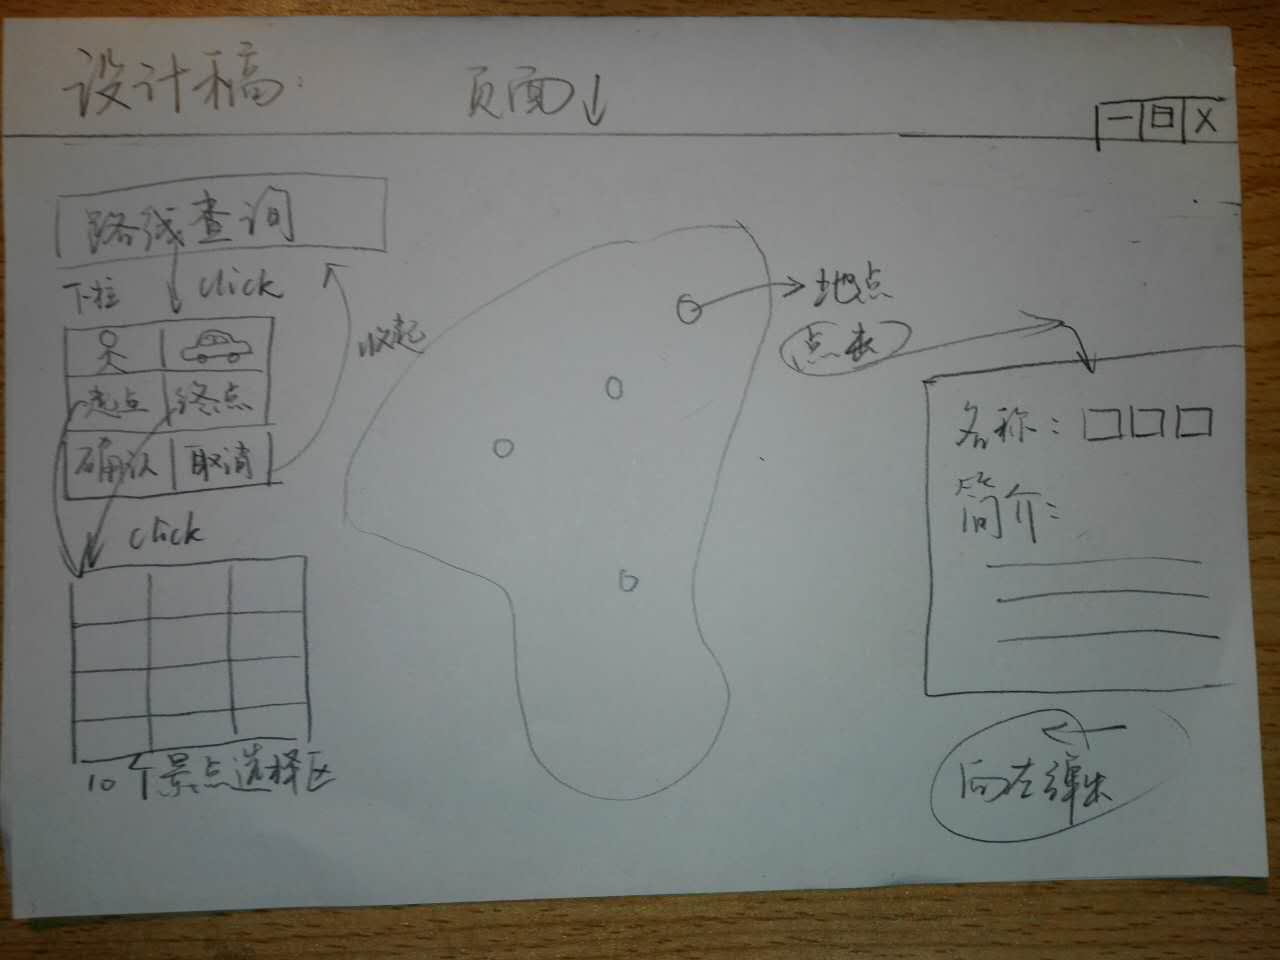 设计稿：
页面↓
路线查询
下拉
click
收起
起点
终点
确认
取消
click
10个景点选择区
地点
点击
名称：
简介：
向左弹出